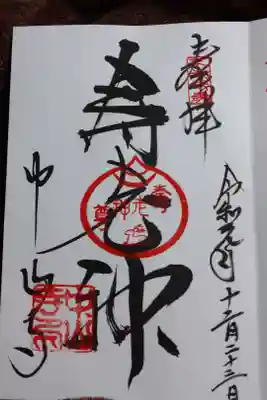 奉拝
令和元年十二月二十三日
寿老神
中山寺